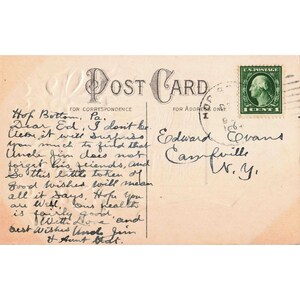 POST CARD
FOR CORRESPONDENCE
FOR ADDRESS ONLY
U.S. POSTAGE
1 CENT 1
HOP
Hop Bottom, Pa.
Dear Ed, I don't be-
lieve it will surprise
you much to find that
Uncle Jim does not
forget his friends, and
So this little token of
Good Wishes will mean
all it Says. Hope you
are Well, Our health
is fairly good
With Love and
best wishes Uncle Jim
& Aunt
Edward Evans
N.Y.